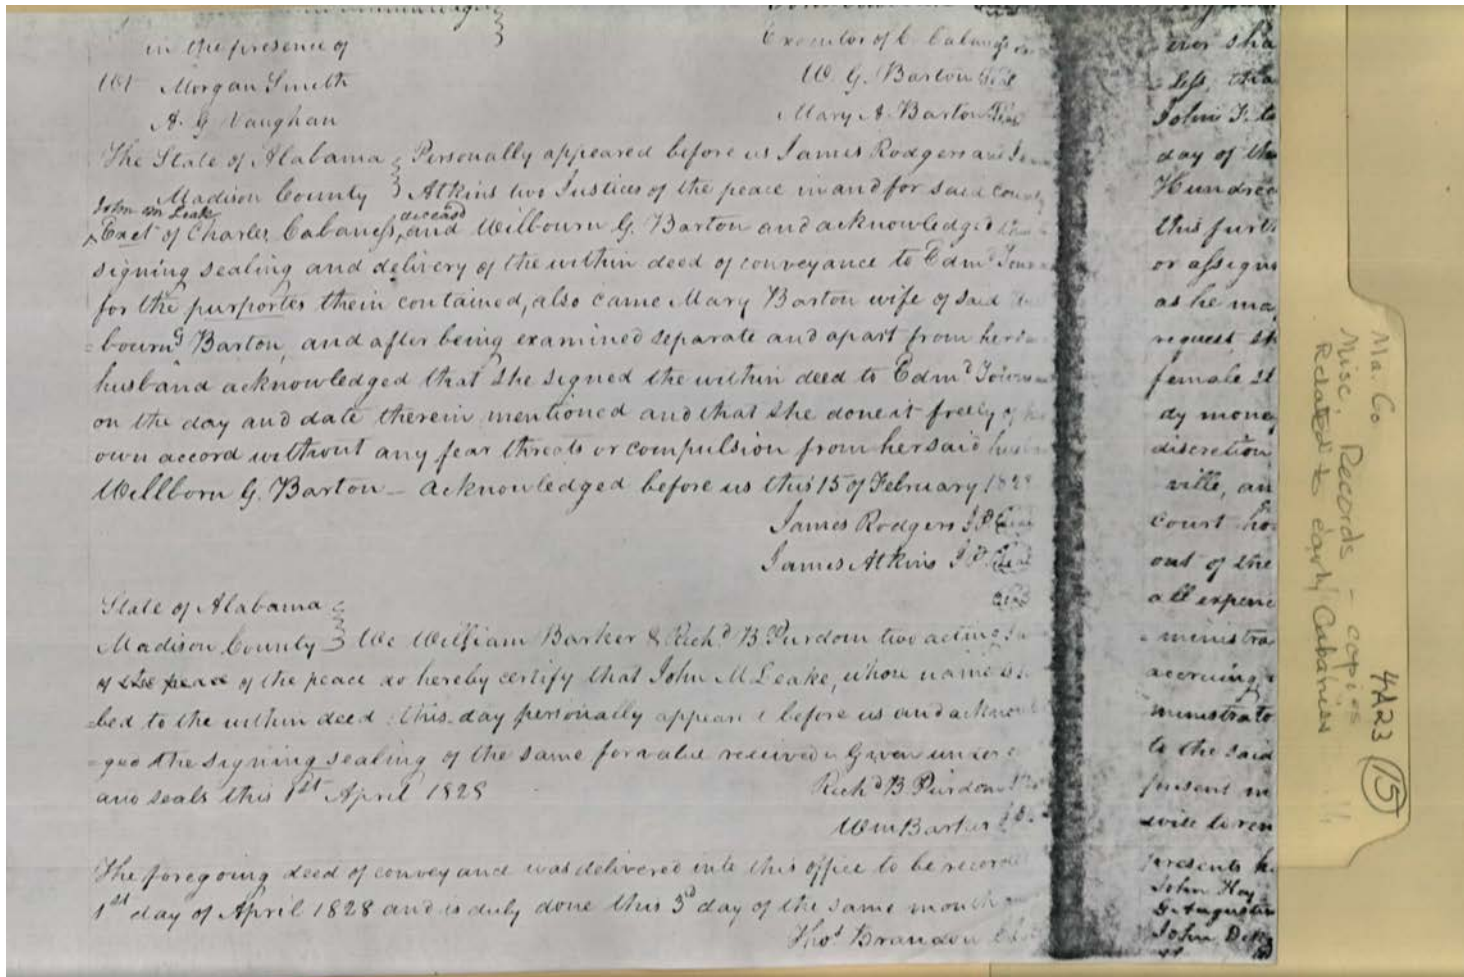 in the presence of
Executor of C. Cabaness
Test Morgan Smith
W. G. Barton Seal
A. G Vaughan
Mary A. Barton Seal
The State of Alabama Personally appeared before us James Rodgers and
Madison County Atkins two Justices of the peace in and for said County
John M Leake deceasd
Exect of Charles Cabaness and Wilbourn G. Barton and acknowledged the
signing sealing and delivery of the within deed of conveyance to Edmd
for the purportes therin contained, also came Mary Barton wife of said
=bourn G Barton, and after being examined separate and apart from her
husband acknowledged that she signed the within deed to Edmd
on the day and date therein mentioned and that she done it freely of
own accord without any fear threats or compulsion from her said
Willborn G. Barton – acknowledged before us this 15 of February 1828
James Rodgers J.P. Seal
James Atkins J.P. Seal
State of Alabama
Madison County We William Barker & Richd B Purdom two acting
of the peace of the peace do hereby certify that John M Leake, whose name
=bed to the within deed this day personally appeared before us and
=ged the signing sealing of the same for value received Given under
and seals this 1st April 1828
Richd B. Purdom
Wm Barker
The foregoing deed of conveyance was delivered into this office to be recorded
1st day of April 1828 and is duly done this 3d day of the same month
Thos Brandon
ever sha
less, tha
John T. to
day of the
Hundred
this furth
or assigns
as he ma
request sh
female sl
dy money
discretion
ville, an
court ho
out of the
all expenc
=ministra
accruing
ministrato
to the said
present
will to ren
presents
John Hoy
G. Augustin
John
Ma. Co
Misc. Records – copies
Related to early Cabaniss
4A23 (15)